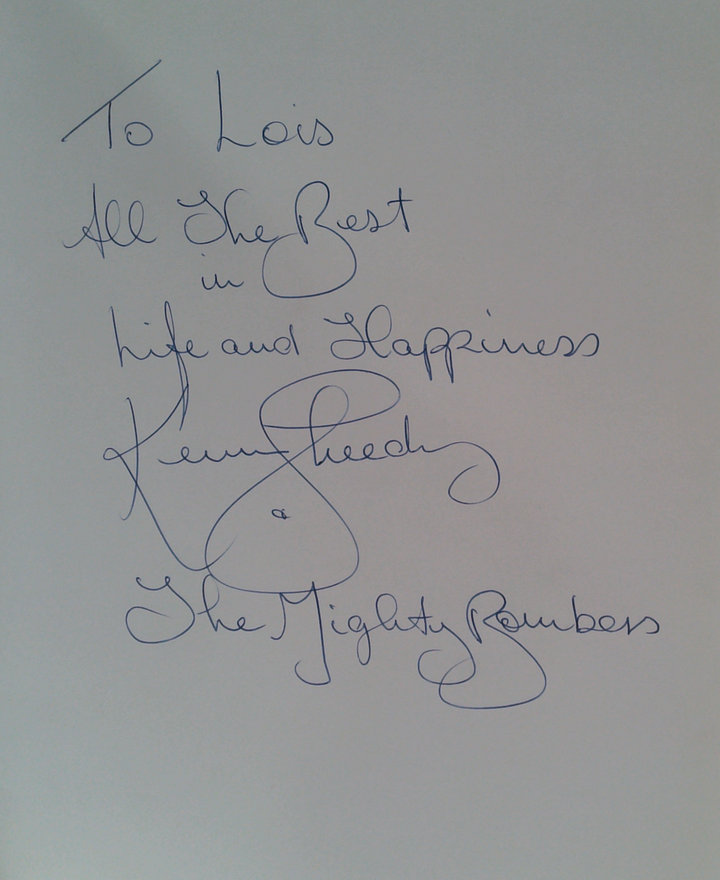 To Lois
All The Best
in
Life and Happiness
Kevin Sheedy
&
The Mighty Bombers